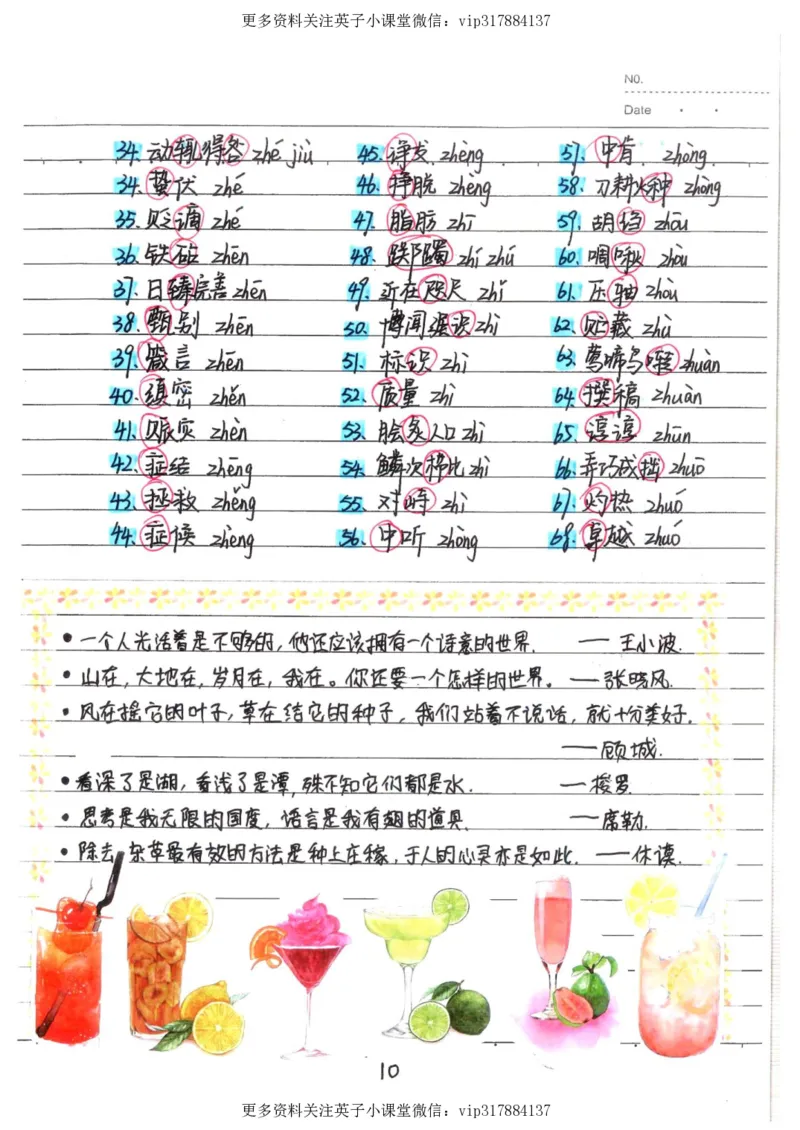 更多资料关注英子小课堂微信：vip317884137
NO.
Date
34. 动辄得咎 zhé jiù
34. 蛰伏 zhé
35. 贬谪 zhé
36. 铁砧 zhēn
37. 日臻完善 zhēn
38. 甄别 zhēn
39. 箴言 zhēn
40. 缜密 zhěn
41. 赈灾 zhèn
42. 症结 zhēng
43. 拯救 zhěng
44. 症候 zhèng
45. 诤友 zhèng
46. 挣脱 zhèng
47. 脂肪 zhī
48. 踯躅 zhí zhú
49. 近在咫尺 zhǐ
50. 博闻强识 zhì
51. 标识 zhì
52. 质量 zhì
53. 脍炙人口 zhì
54. 鳞次栉比 zhì
55. 对峙 zhì
56. 中听 zhōng
57. 中肯 zhòng
58. 刀耕火种 zhòng
59. 胡诌 zhōu
60. 啁啾 zhōu
61. 压轴 zhòu
62. 贮藏 zhù
63. 莺啼鸟啭 zhuàn
64. 撰稿 zhuàn
65. 谆谆 zhūn
66. 弄巧成拙 zhuō
67. 灼热 zhuó
68. 卓越 zhuó
• 一个人光活着是不够的，他还应该拥有一个诗意的世界. —— 王小波.
• 山在，大地在，岁月在，我在。你还要一个怎样的世界。—— 张晓风.
• 风在摇它的叶子，草在结它的种子，我们站着不说话，就十分美好.
—— 顾城.
• 看深了是湖，看浅了是潭，殊不知它们都是水. —— 梭罗.
• 思考是我无限的国度，语言是我有翅的道具. —— 席勒.
• 除去杂草最有效的方法是种上庄稼，于人的心灵亦是如此. —— 休谟.
10
更多资料关注英子小课堂微信：vip317884137